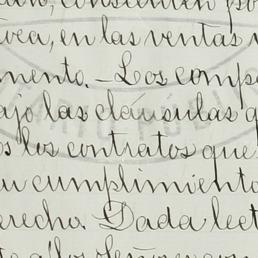 consienten po
en las ventas
mento. - Los comp
ajo las cláusulas q
os los contratos que
u cumplimiento
erecho. Dada lect